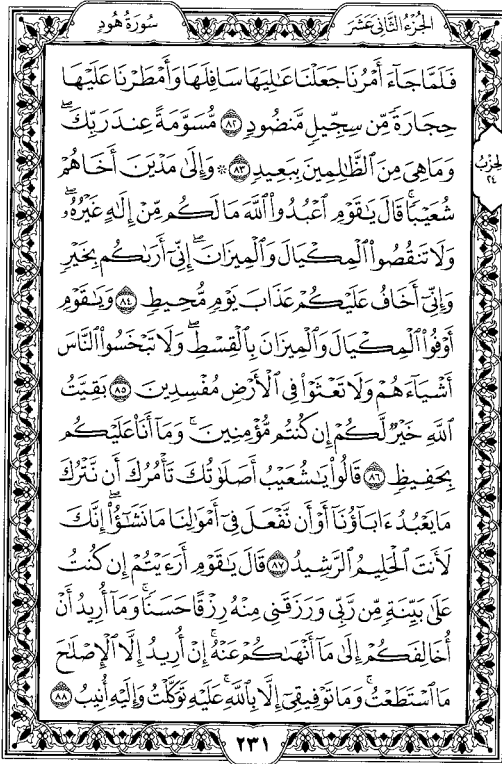 سُورَةُ هُودٍ
الجُزْءُ الثَّانِي عَشَرَ
فَلَمَّا جَآءَ أَمْرُنَا جَعَلْنَا عَٰلِيَهَا سَافِلَهَا وَأَمْطَرْنَا عَلَيْهَا
حِجَارَةً مِّن سِجِّيلٍ مَّنضُودٍ ٨٢ مُّسَوَّمَةً عِندَ رَبِّكَۖ
وَمَا هِيَ مِنَ ٱلظَّٰلِمِينَ بِبَعِيدٍ ٨٣ ۞ وَإِلَىٰ مَدْيَنَ أَخَاهُمْ
شُعَيْبًاۚ قَالَ يَٰقَوْمِ ٱعْبُدُوا۟ ٱللَّهَ مَا لَكُم مِّنْ إِلَٰهٍ غَيْرُهُۥۖ
وَلَا تَنقُصُوا۟ ٱلْمِكْيَالَ وَٱلْمِيزَانَۖ إِنِّىٓ أَرَىٰكُم بِخَيْرٍ
وَإِنِّىٓ أَخَافُ عَلَيْكُمْ عَذَابَ يَوْمٍ مُّحِيطٍ ٨٤ وَيَٰقَوْمِ
أَوْفُوا۟ ٱلْمِكْيَالَ وَٱلْمِيزَانَ بِٱلْقِسْطِۖ وَلَا تَبْخَسُوا۟ ٱلنَّاسَ
أَشْيَآءَهُمْ وَلَا تَعْثَوْا۟ فِى ٱلْأَرْضِ مُفْسِدِينَ ٨٥ بَقِيَّتُ
ٱللَّهِ خَيْرٌ لَّكُمْ إِن كُنتُم مُّؤْمِنِينَۚ وَمَآ أَنَا۠ عَلَيْكُم
بِحَفِيظٍ ٨٦ قَالُوا۟ يَٰشُعَيْبُ أَصَلَوٰتُكَ تَأْمُرُكَ أَن نَّتْرُكَ
مَا يَعْبُدُ ءَابَآؤُنَآ أَوْ أَن نَّفْعَلَ فِىٓ أَمْوَٰلِنَا مَا نَشَٰٓؤُا۟ۖ إِنَّكَ
لَأَنتَ ٱلْحَلِيمُ ٱلرَّشِيدُ ٨٧ قَالَ يَٰقَوْمِ أَرَءَيْتُمْ إِن كُنتُ
عَلَىٰ بَيِّنَةٍ مِّن رَّبِّى وَرَزَقَنِى مِنْهُ رِزْقًا حَسَنًاۚ وَمَآ أُرِيدُ أَنْ
أُخَالِفَكُمْ إِلَىٰ مَآ أَنْهَىٰكُمْ عَنْهُۚ إِنْ أُرِيدُ إِلَّا ٱلْإِصْلَٰحَ
مَا ٱسْتَطَعْتُۚ وَمَا تَوْفِيقِىٓ إِلَّا بِٱللَّهِۚ عَلَيْهِ تَوَكَّلْتُ وَإِلَيْهِ أُنِيبُ ٨٨
الحِزْبُ
٢٤
٢٣١